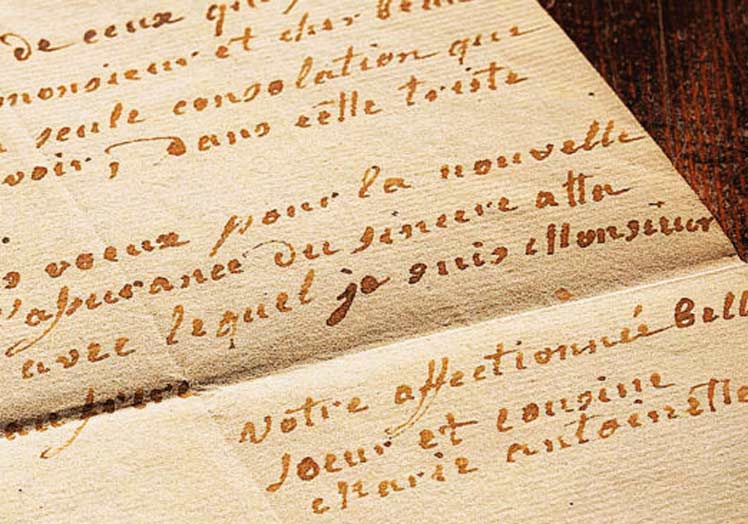 de ceux que
monsieur et cher
seule consolation que
voir, dans cette triste
voeux pour la nouvelle
l'assurance du sincere atta
avec lequel je suis Monsieur
frere
votre affectionnée bell
soeur et cousine
Marie antoinette